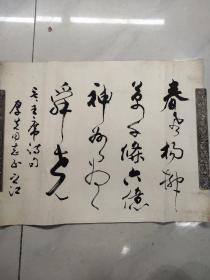 春风杨柳
万千條六億
神州尽
舜尧
毛主席詩句